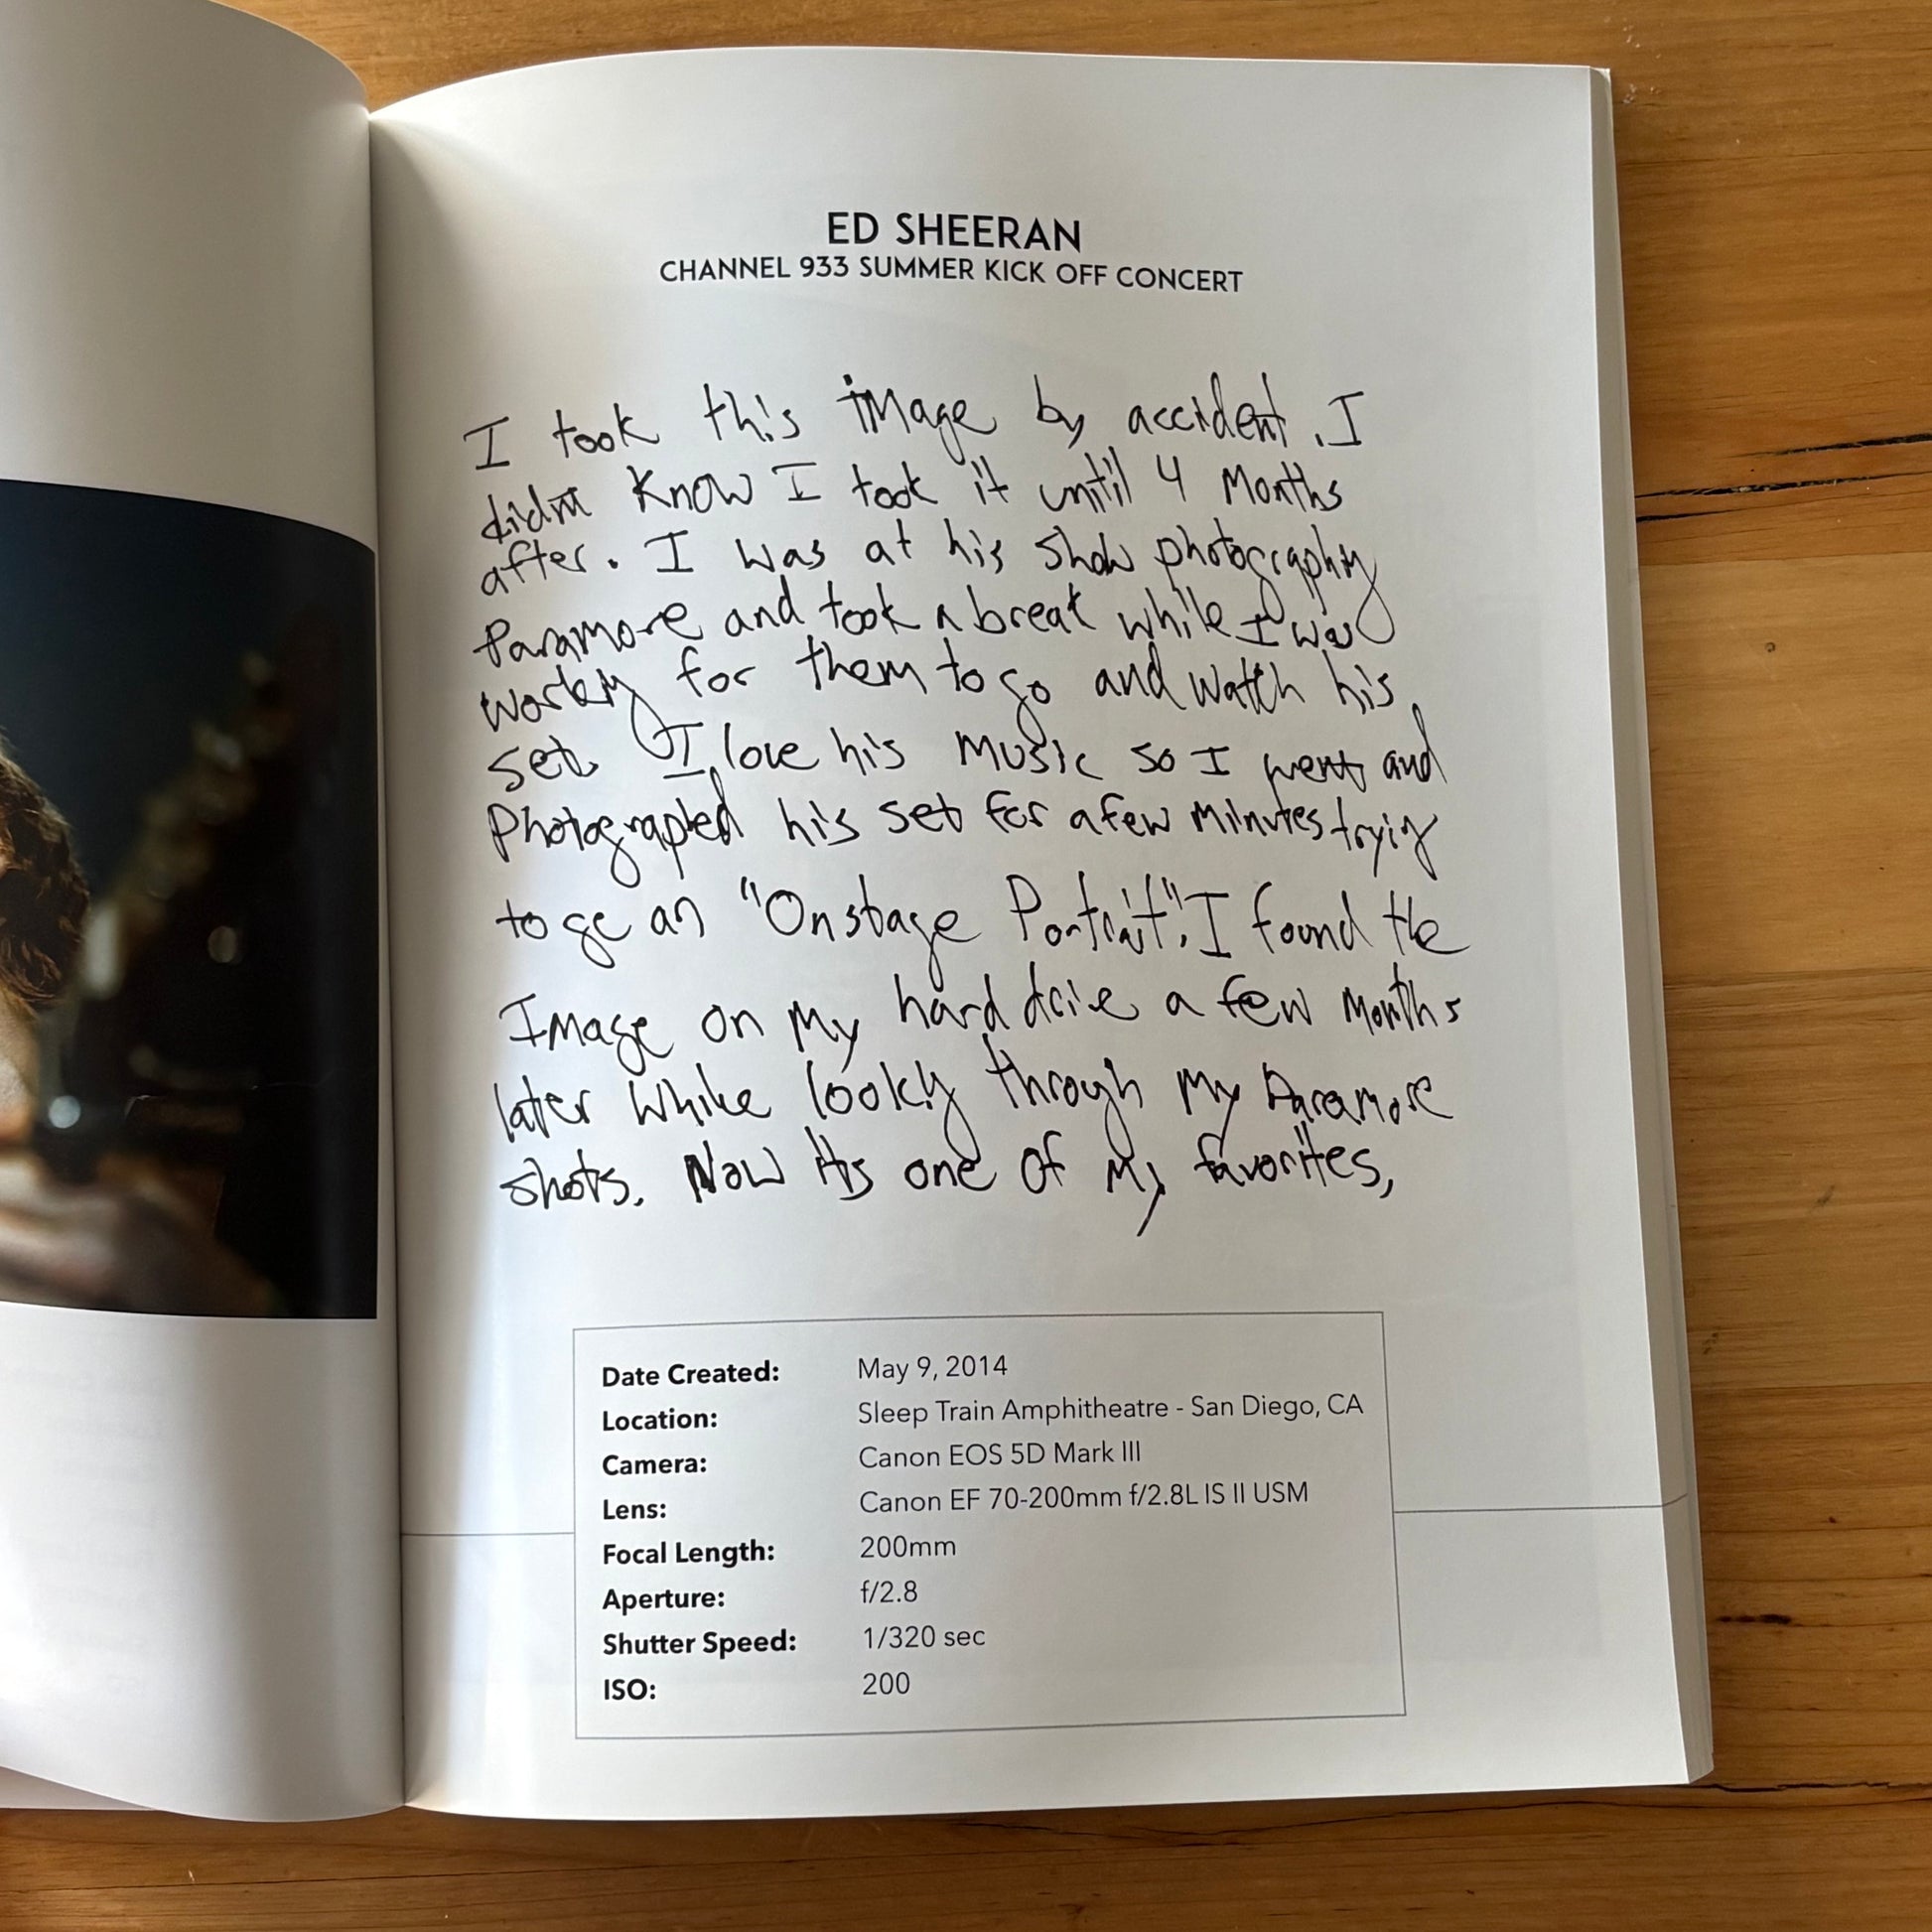 ED SHEERAN
CHANNEL 933 SUMMER KICK OFF CONCERT
I took this image by accident. I
didnt know I took it until 4 months
after. I was at his show photography
Paramore and took a break while I was
working for them to go and watch his
set. I love his music so I went and
Photographed his set for a few minutes trying
to ge an "Onstage Portrait". I found the
Image on my hard drive a few months
later while looking through my Paramore
shots. Now its one of my favorites,
Date Created: May 9, 2014
Location: Sleep Train Amphitheatre - San Diego, CA
Camera: Canon EOS 5D Mark III
Lens: Canon EF 70-200mm f/2.8L IS II USM
Focal Length: 200mm
Aperture: f/2.8
Shutter Speed: 1/320 sec
ISO: 200